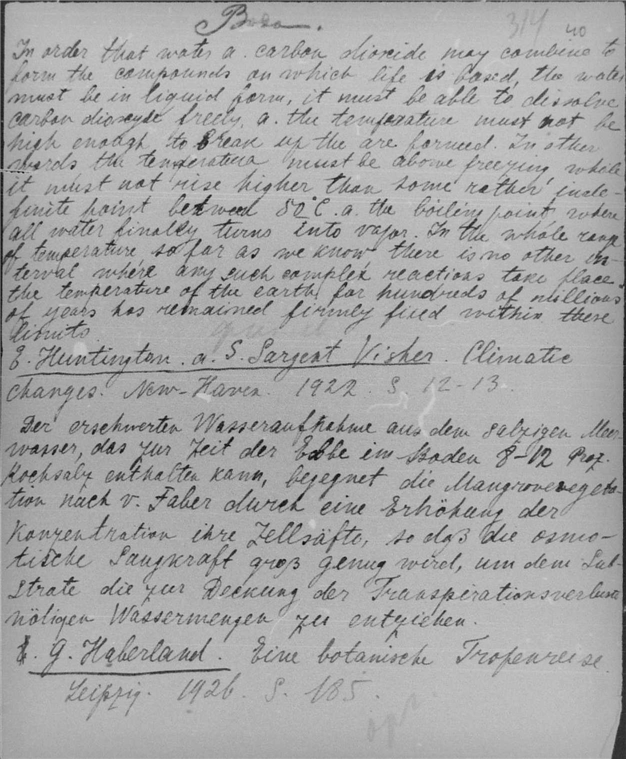 Вода.
314 40
In order that water a. carbon dioxide may combine to
form the compounds on which life is based, the water
must be in liquid form, it must be able to dissolve
carbon dioxyde freely, a. the temperature must not be
high enough to break up the are formed. In other
words the temperature must be above freezing, while
it must not rise higher than some rather inde-
finite point between 50°C. a. the boiling point, where
all water finally turns into vapor. In the whole range
of temperature, so far as we know, there is no other in-
terval where any such complex reactions take place.
The temperature of the earth for hundreds of millions
of years has remained firmly fixed within these
limits
E. Huntington. a. S. Sargent Visher. Climatic
changes. New-Haven. 1922. S. 12-13.
Der erschwerten Wasseraufnahme aus dem salzigen Meer
wasser, das zur Zeit der Ebbe im Boden 8-12 Proz.
Kochsalz enthalten kann, begegnet die Mangrovevegeta-
tion nach v. Faber durch eine Erhöhung der
Konzentration ihre Zellsäfte, so daß die osmo-
tische Saugkraft groß genug wird, um dem Sub-
strate die zur Deckung der Transpirationsverluste
nötigen Wassermengen zu entziehen.
G. Haberland. Eine botanische Tropenreise.
Leipzig. 1926. S. 185.